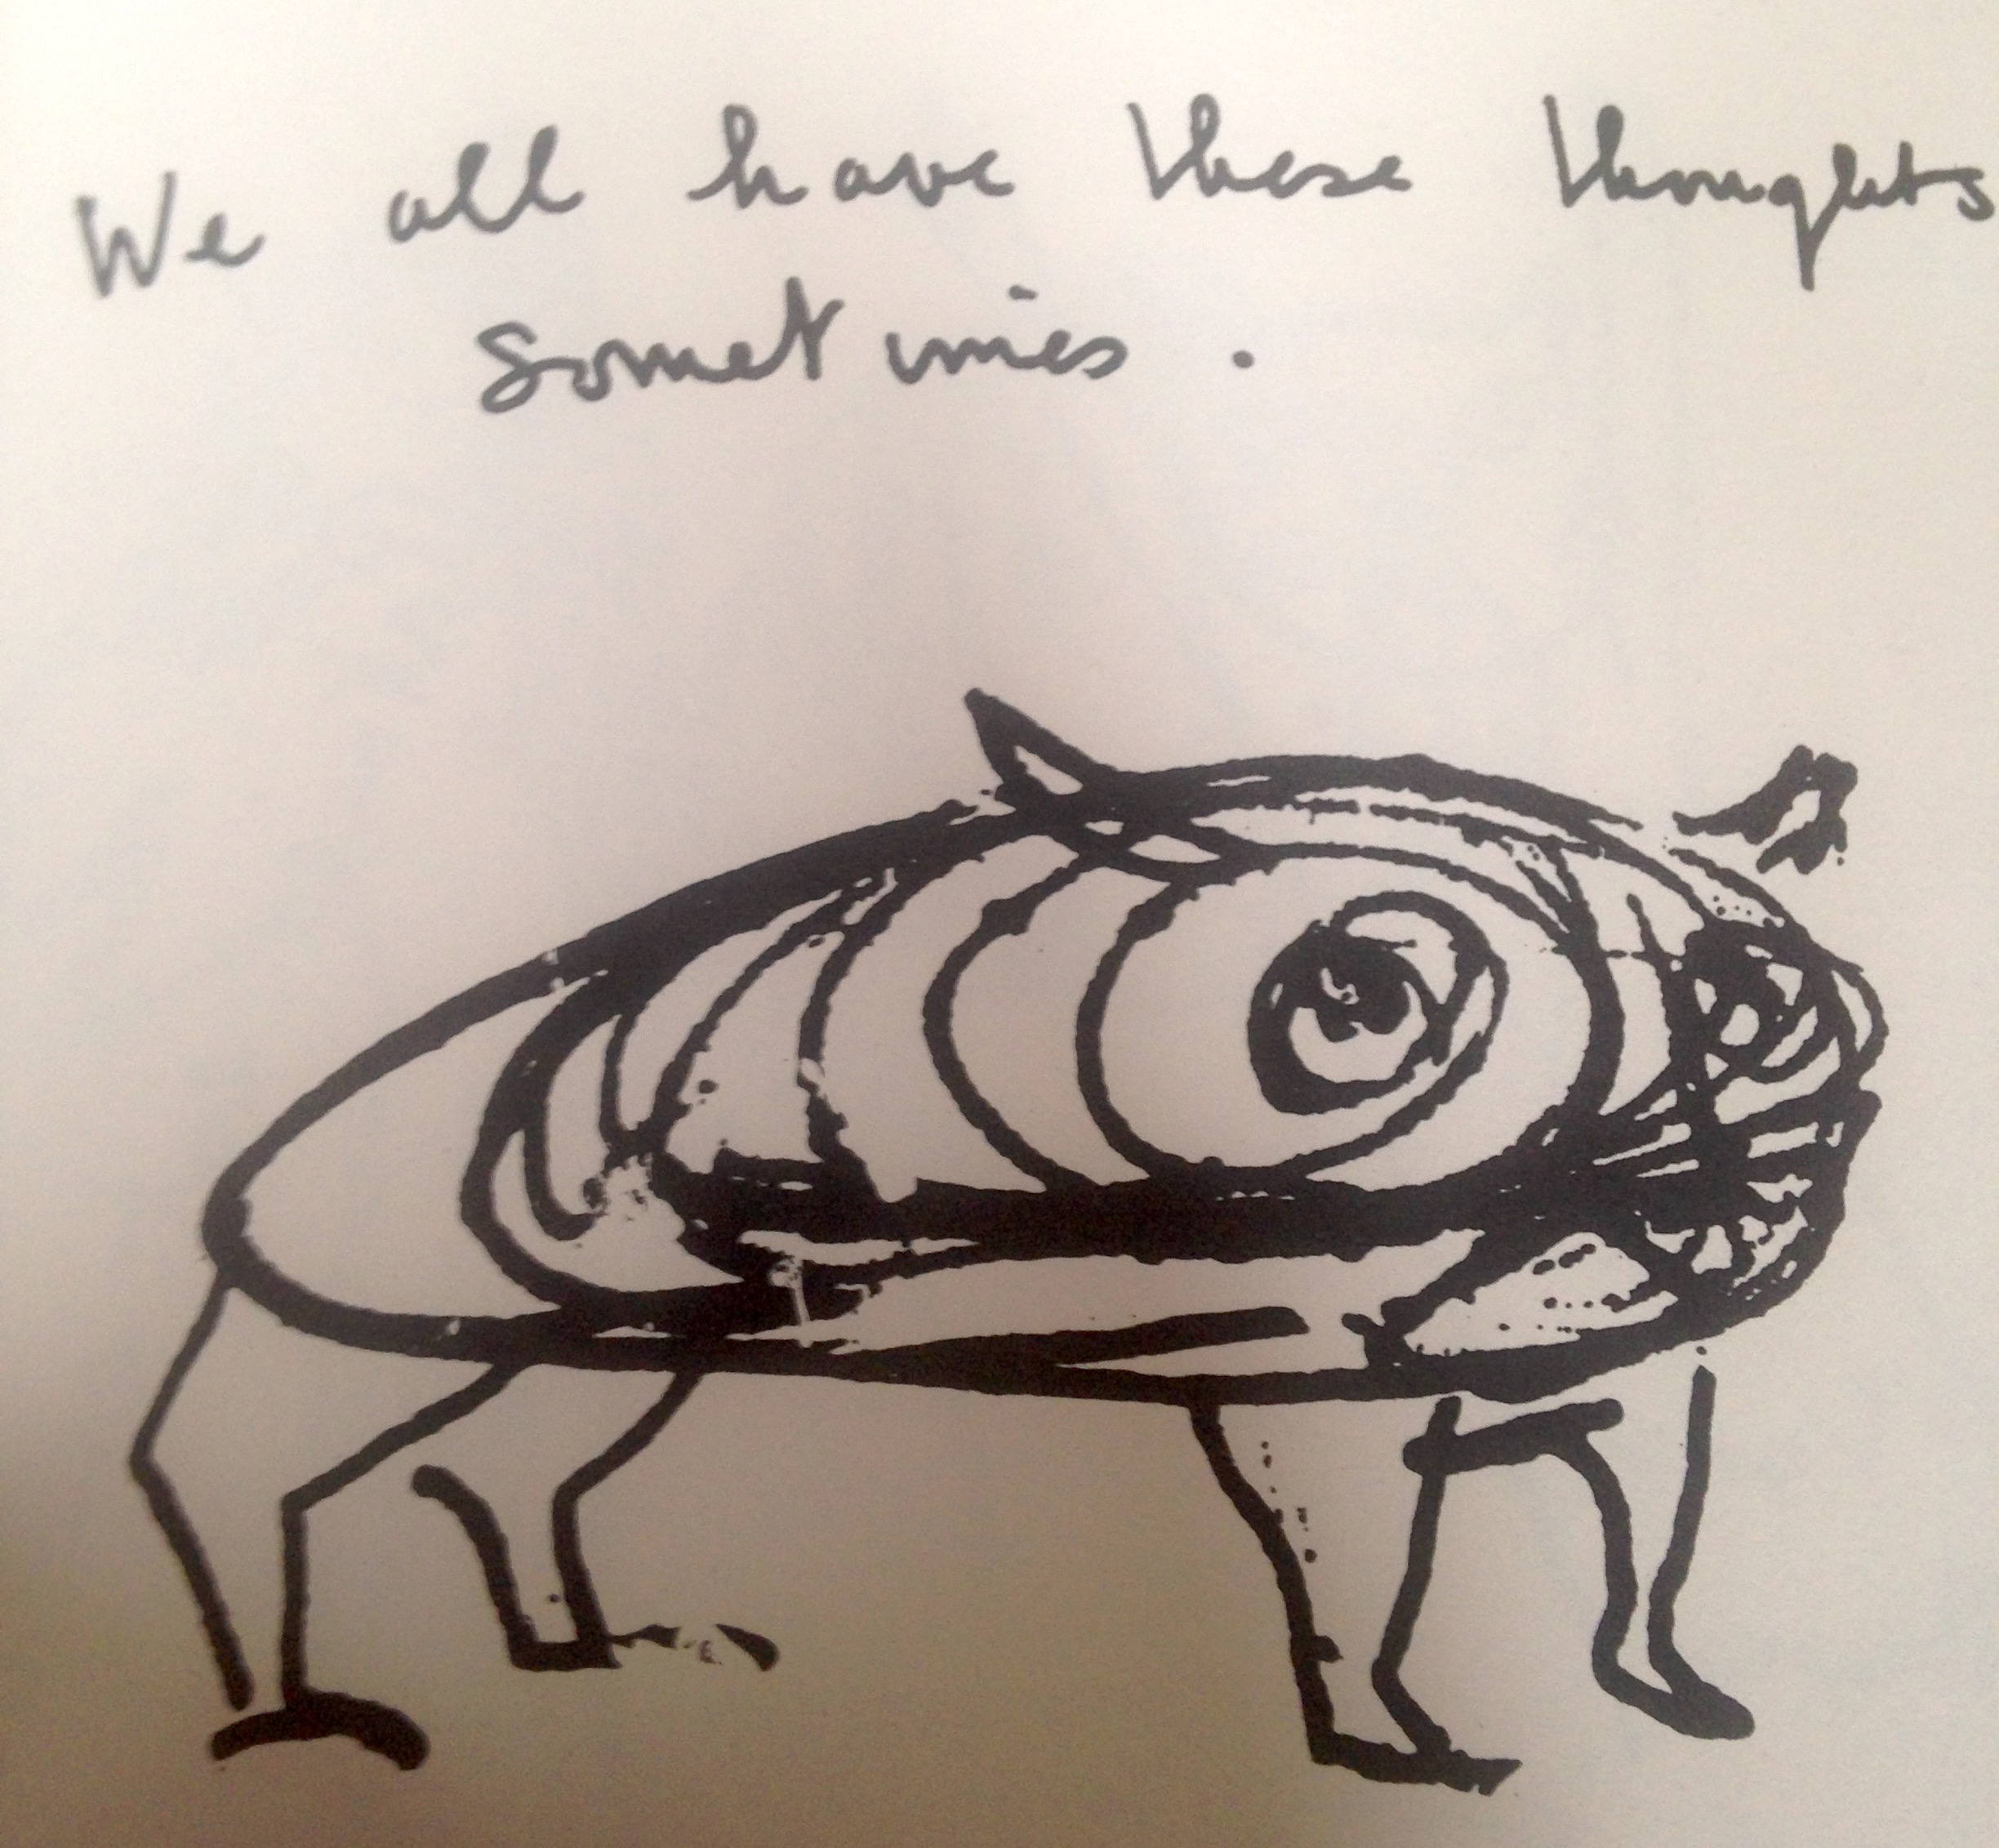 We all have these thoughts
sometimes.